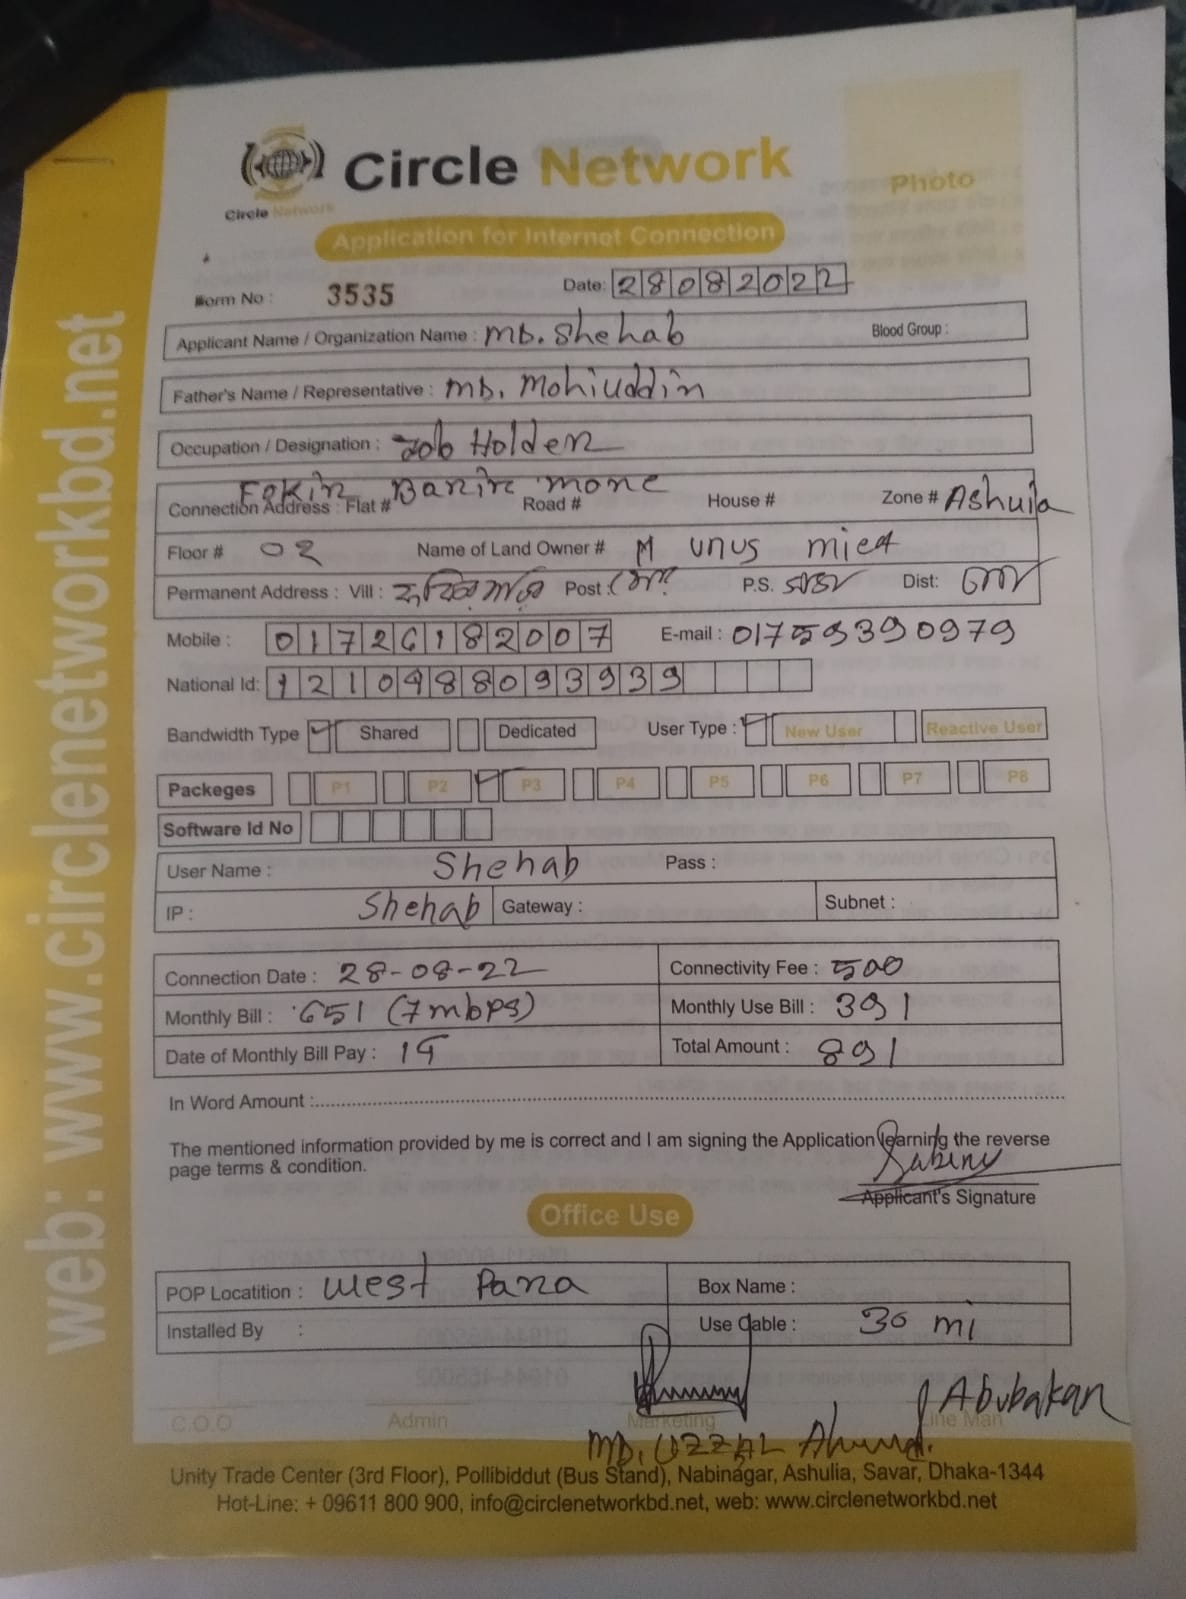 Circle Network
Circle Network
Photo
Application for Internet Connection
Form No : 3535 Date: 28082022
Applicant Name / Organization Name : MD. Shehab Blood Group :
Father's Name / Representative : MD. Mohiuddin
Occupation / Designation : Job Holder
Connection Address : Flat # Fokir Barir mone Road # House # Zone # Ashulia
Floor # 02 Name of Land Owner # M unus miea
Permanent Address : Vill : Post : P.S. সাভার Dist: ঢাকা
Mobile : 01726182007 E-mail : 01759390979
National Id: 1210988093939
Bandwidth Type Shared Dedicated User Type : New User Reactive User
Packeges P1 P2 P3 P4 P5 P6 P7 P8
Software Id No
User Name : Shehab Pass :
IP : Shehab Gateway : Subnet :
Connection Date : 28-08-22 Connectivity Fee : 500
Monthly Bill : 651 (7mbps) Monthly Use Bill : 391
Date of Monthly Bill Pay : Total Amount : 891
In Word Amount :
The mentioned information provided by me is correct and I am signing the Application learning the reverse
page terms & condition.
Applicant's Signature
Office Use
POP Locatition : West Para Box Name :
Installed By : Use Cable : 30 mi
Abubakar
C.O.O Admin Marketing Line Man
MD. UZZAL Ahmed.
Unity Trade Center (3rd Floor), Pollibiddut (Bus Stand), Nabinagar, Ashulia, Savar, Dhaka-1344
Hot-Line: + 09611 800 900, info@circlenetworkbd.net, web: www.circlenetworkbd.net
web: www.circlenetworkbd.net